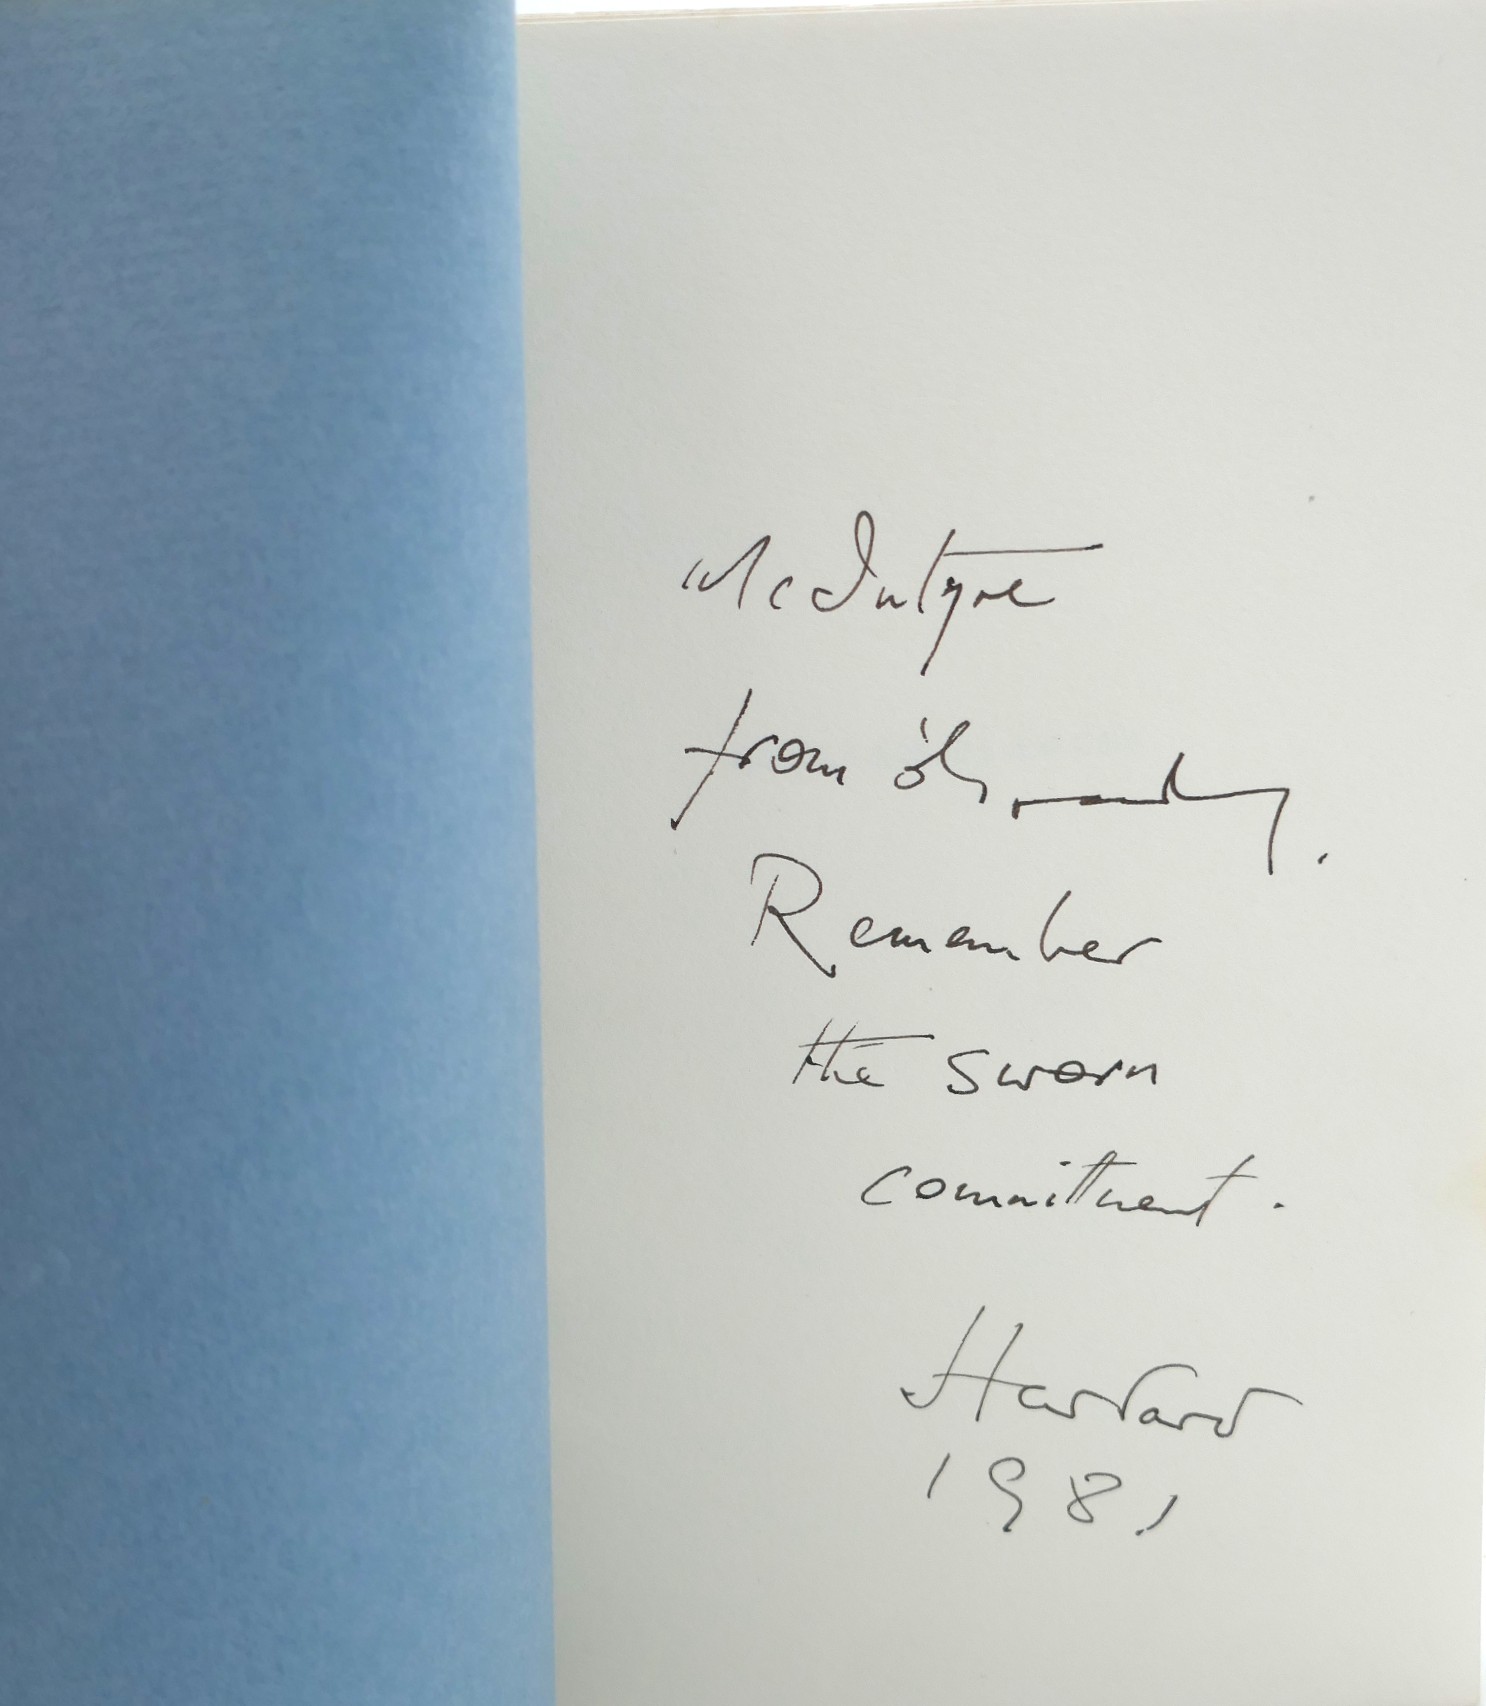 McIntyre
from
Remember
the sworn
commitment.
Harvard
1981